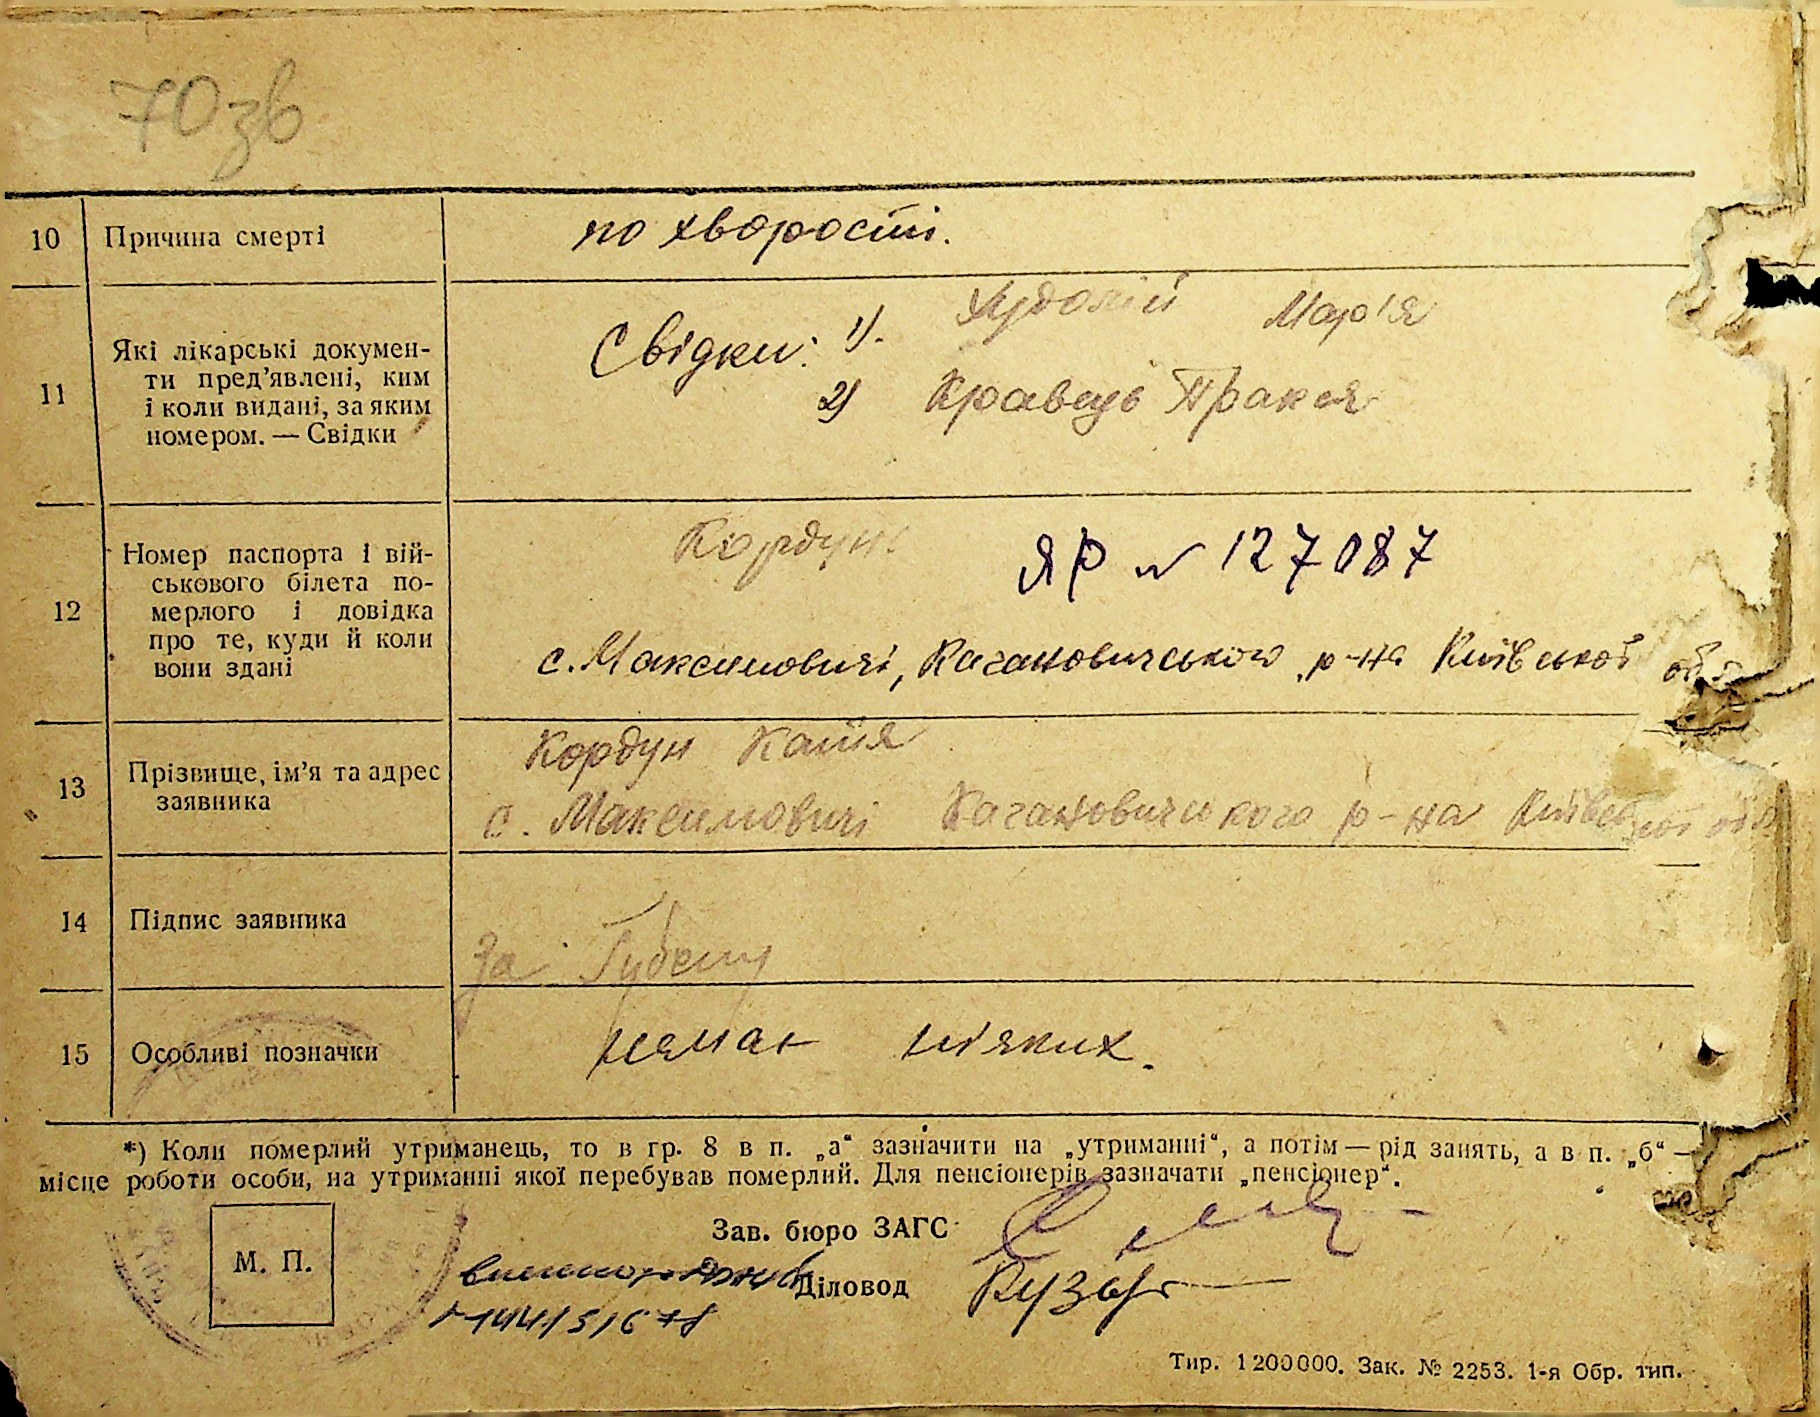 70зв
10 Причина смерті по хворості.
11 Які лікарські докумен-
ти пред’явлені, ким
і коли видані, за яким
номером. — Свідки
Свідки: 1). Мар'я
2) Кравець
12 Номер паспорта і вій-
ськового білета по-
мерлого і довідка
про те, куди й коли
вони здані
Кордун ЯР № 127087
с. Максимовичі, Кагановичського р-на Київської обл.
13 Прізвище, ім’я та адрес
заявника
Кордун Катя
с. Максимовичі Кагановичського р-на Київської обл
14 Підпис заявника
За
15 Особливі позначки немає ніяких.
*) Коли померлий утриманець, то в гр. 8 в п. „а“ зазначити на „утриманні“, а потім — рід занять, а в п. „б“ —
місце роботи особи, на утриманні якої перебував померлий. Для пенсіонерів зазначати „пенсіонер“.
Зав. бюро ЗАГС
М. П.
Діловод
Тир. 1200000. Зак. № 2253. 1-я Обр. тип.